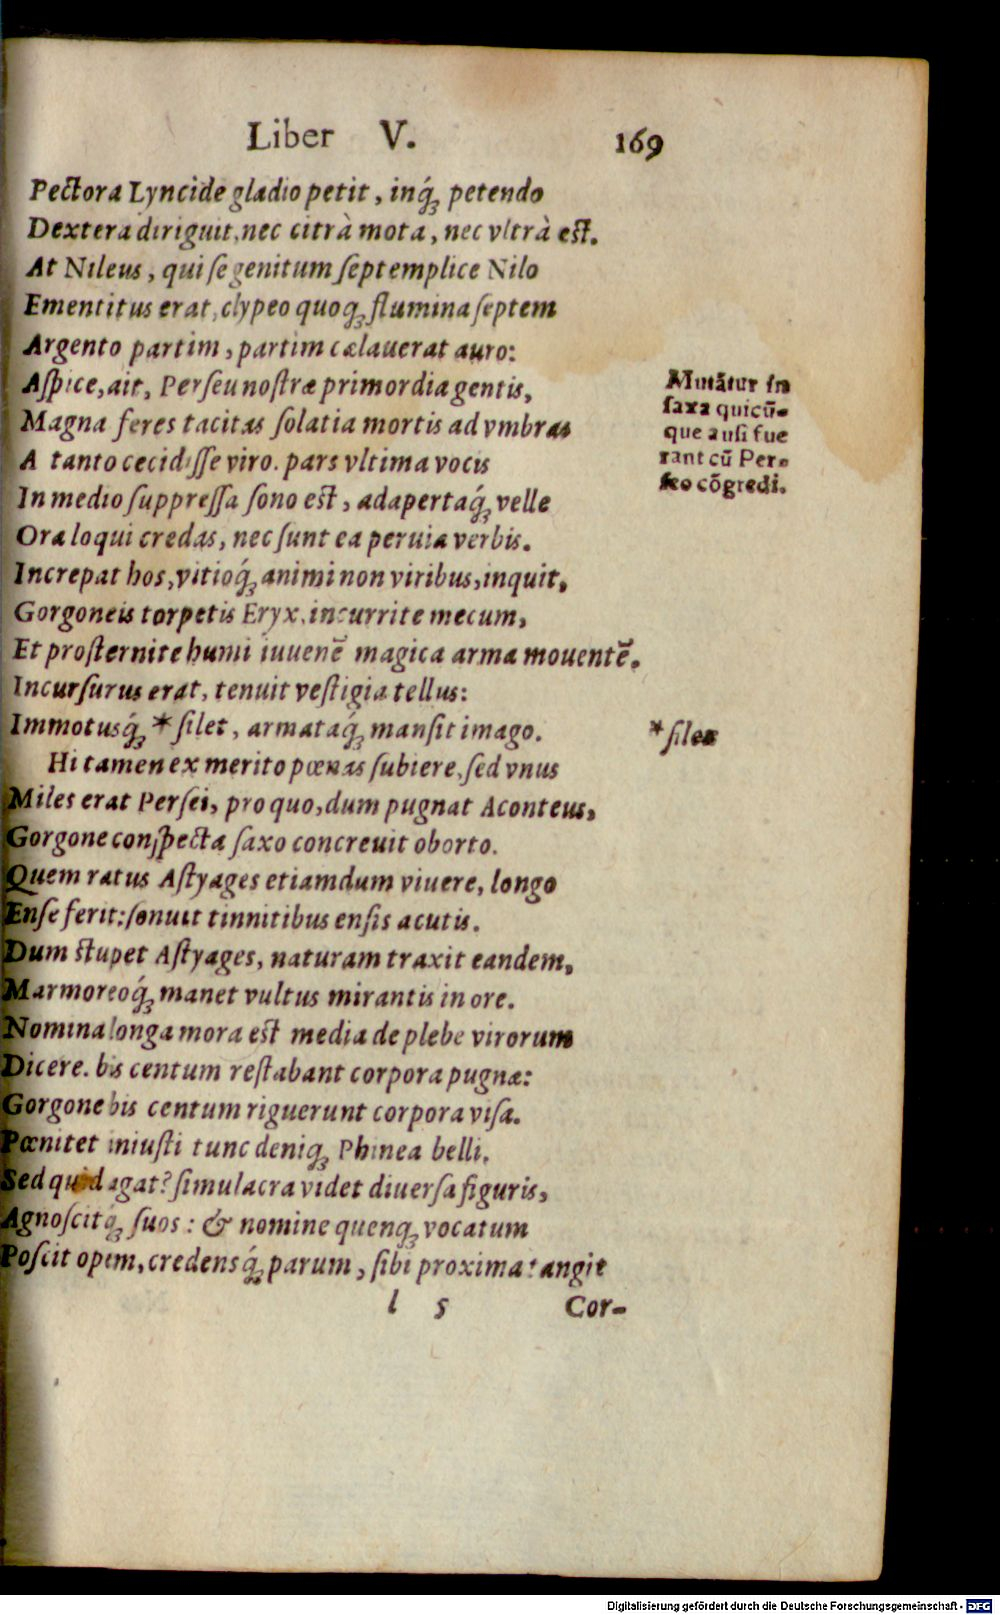 Liber V. 169
Pectora Lyncide gladio petit, inq́ꝫ petendo
Dextera diriguit, nec citrà mota, nec vltrà est.
At Nileus, qui se genitum septemplice Nilo
Ementitus erat, clypeo quoqꝫ flumina septem
Argento partim, partim cælauerat auro:
Aspice, ait, Perseu nostræ primordia gentis,
Magna feres tacitas solatia mortis ad vmbras
A tanto cecidisse viro. pars vltima vocis
In medio suppressa sono est, adapertaq́ꝫ velle
Ora loqui credas, nec sunt ea peruia verbis.
Increpat hos, vitioq́ꝫ animi non viribus, inquit,
Gorgoneis torpetis Eryx, incurrite mecum,
Et prosternite humi iuuenē magica arma mouentē.
Incursurus erat, tenuit vestigia tellus:
Immotusq́ꝫ *silet, armataq́ꝫ mansit imago.
Hi tamen ex merito pœnas subiere, sed vnus
Miles erat Persei, pro quo, dum pugnat Aconteus,
Gorgone conspecta saxo concreuit oborto.
Quem ratus Astyages etiamdum viuere, longo
Ense ferit: sonuit tinnitibus ensis acutis.
Dum stupet Astyages, naturam traxit eandem,
Marmoreoq́ꝫ manet vultus mirantis in ore.
Nomina longa mora est media de plebe virorum
Dicere. bis centum restabant corpora pugnæ:
Gorgone bis centum riguerunt corpora visa.
Pœnitet iniusti tunc deniqꝫ Phinea belli.
Sed quid agat? simulacra videt diuersa figuris,
Agnoscitq́ꝫ suos: & nomine quenqꝫ vocatum
Poscit opem, credensq́ꝫ parum, sibi proxima tangit
l 5 Cor-
Mutātur in
saxa quicū-
que ausi fue
rant cū Per-
seo cōgredi.
*silex
Digitalisierung gefördert durch die Deutsche Forschungsgemeinschaft - DFG